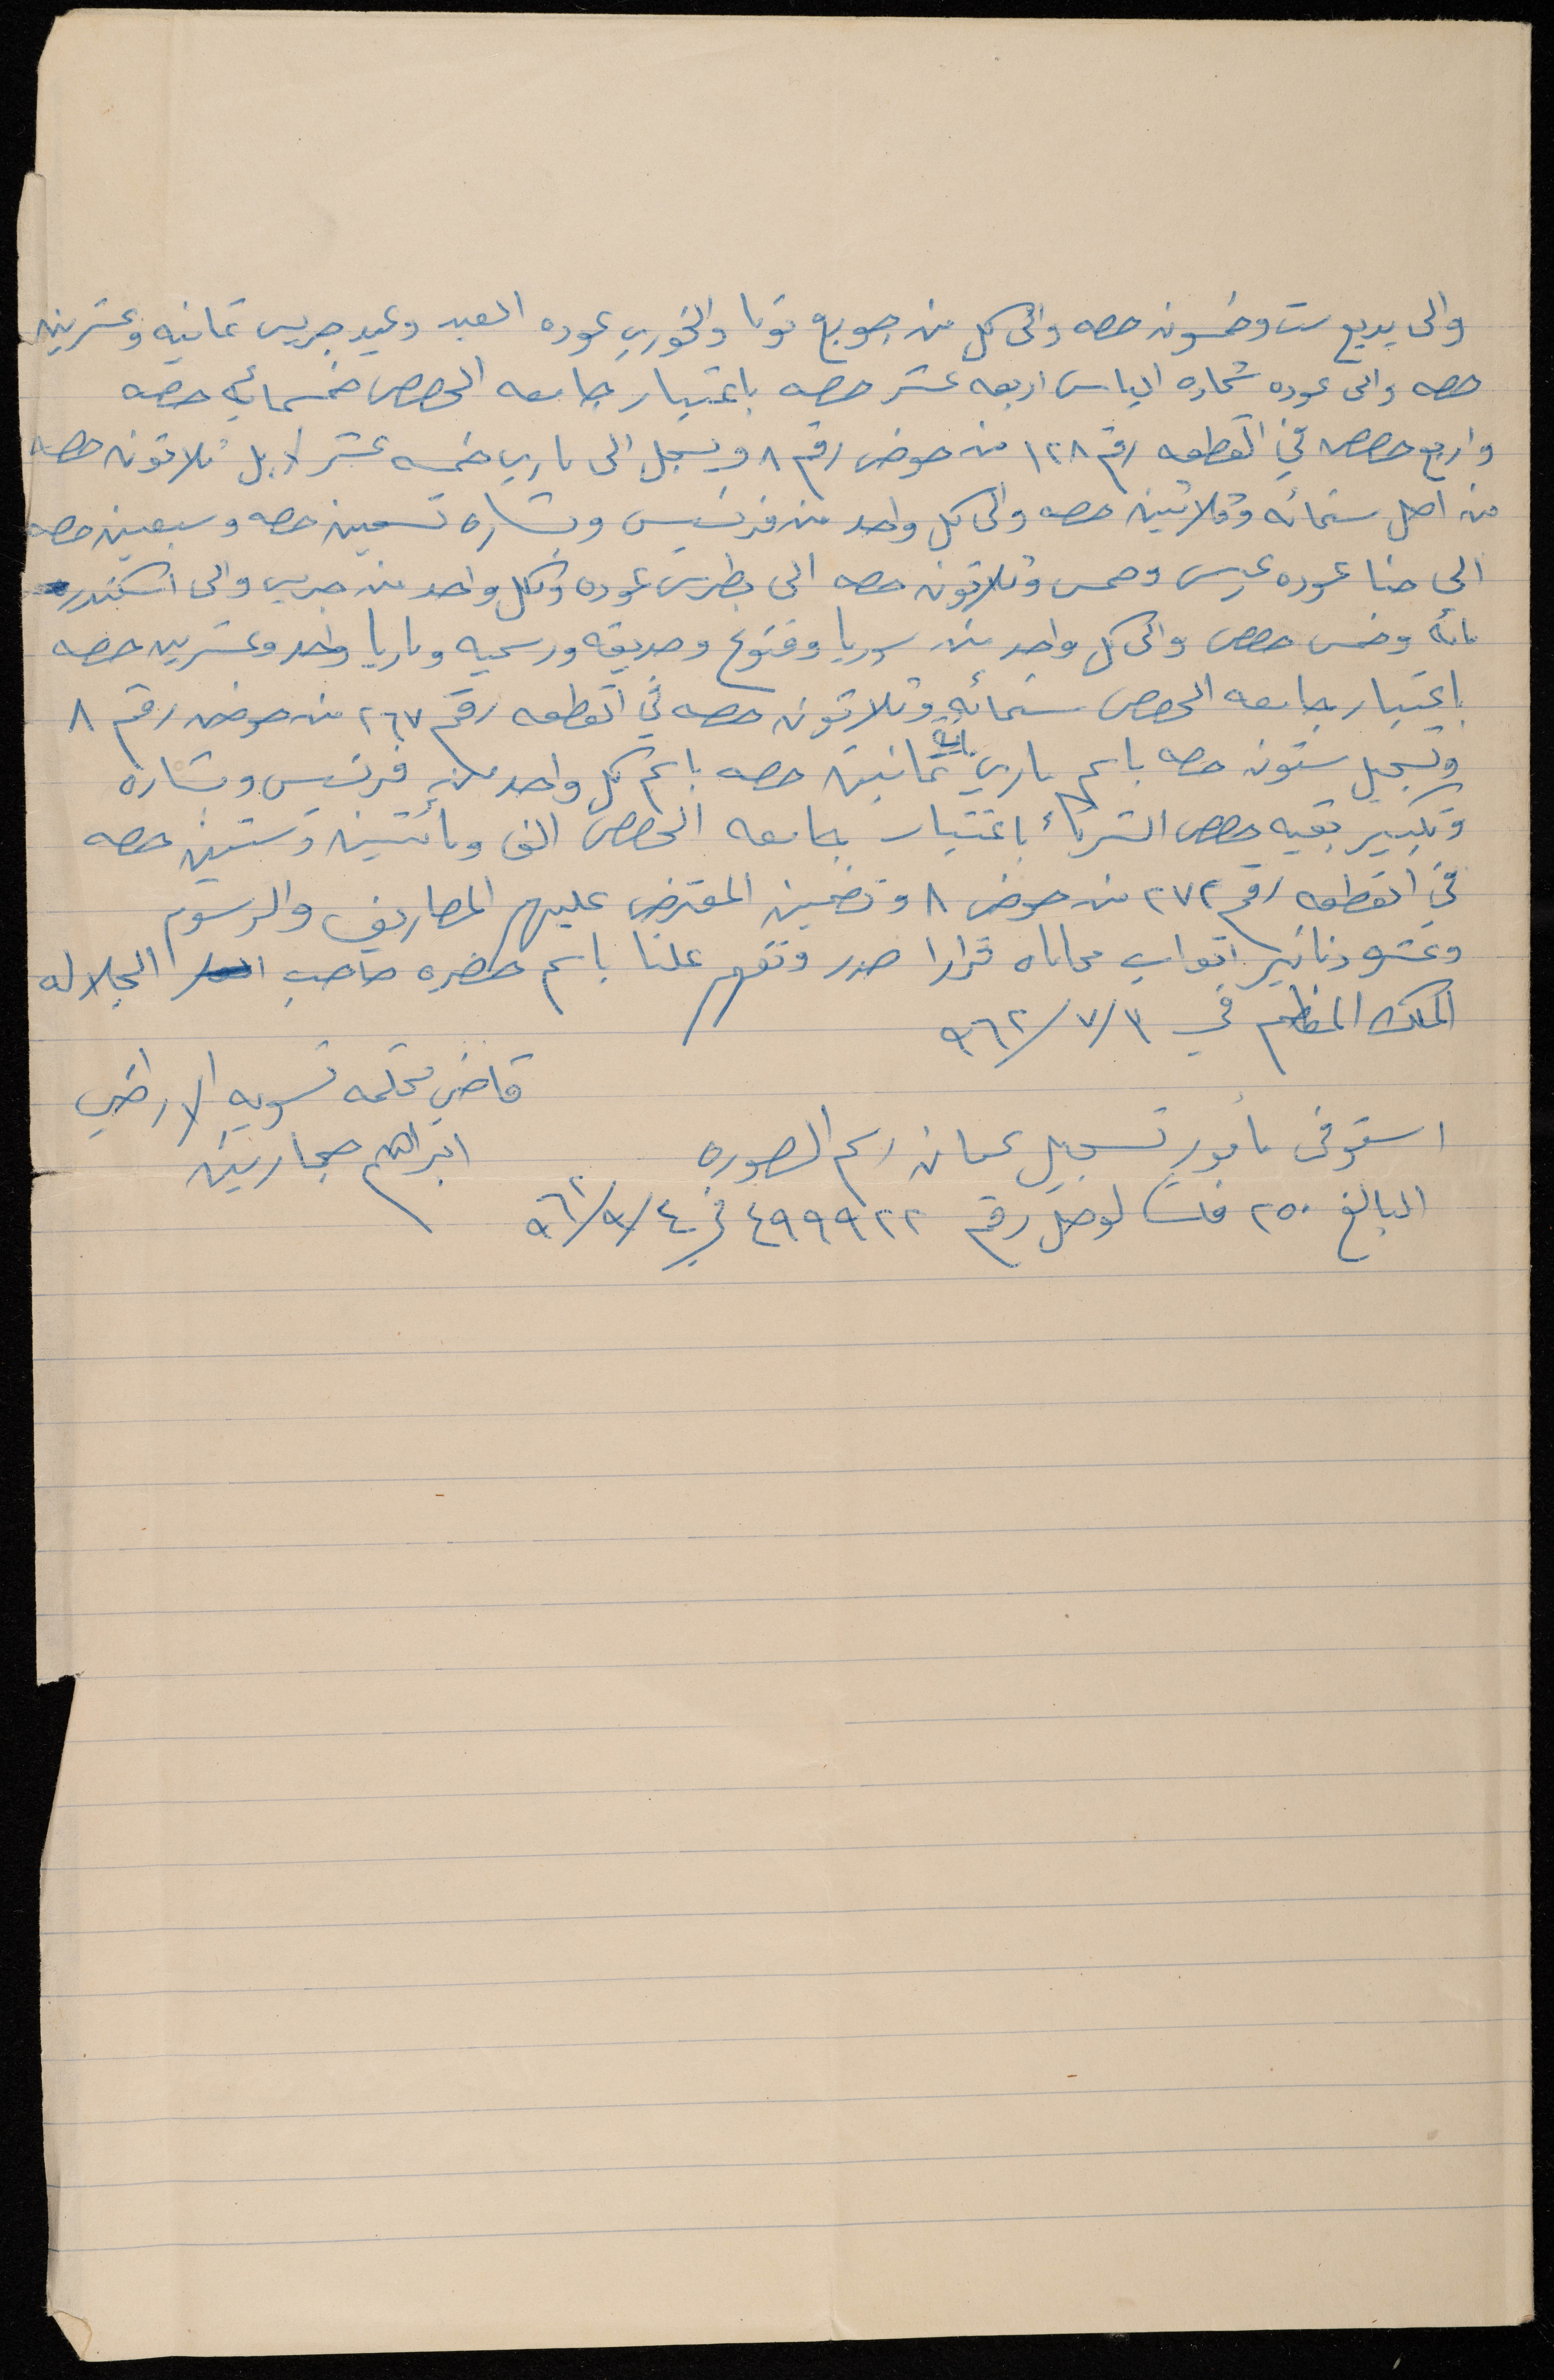 والى بديع ست وخمسون حصه والى كل من جويع توما والخوري عوده العبد وعيد جريس ثمانيه وعشرين
حصه والى عوده شحاده الياس اربعه عشر حصه باعتبار جامعه الحصص خمسمائه حصه
واربع حصص في القطعه رقم ١٢٨ من حوض رقم ٨ ويسجل الى ماري خمسه عشر لا بل ثلاثون حصه
من اصل ستمائه وثلاثين حصه والى كل واحد من فرنسيس وبشاره تسعين حصه وسبعين حصه
الى حنا عوده عيسى وخمس وثلاثون حصه الى بطرس عوده ولكل واحد من جريس والى اسكندر
مائة وخمس حصص والى كل واحد من سوريا وفتوح وصديقه ورسميه وماريا واحد وعشرين حصه
باعتبار جامعه الحصص ستمائه وثلاثون حصه في القطعه رقم ٢٦٧ من حوض رقم ٨
وتسجيل ستون حصه باسم ماري مايه ثمانين حصه باسم كل واحد من فرنسيس وبشاره
وتكبير بقيه حصص الشركاء باعتبار جامعه الحصص الف ومائتين وستين حصه
في القطعه رقم ٢٧٢ من حوض ٨ وتضمين المعترض عليهم المصاريف والرسوم
وعشره دنانير اتعاب محاماه قرارا صدر وتفهم علنا باسم حضره صاحب الجلاله
الملك المعظم في ٣/٧/٩٦٢
قاضي محكمه تسويه الاراضي
ابراهيم حجازين
استوفى مأمور تسجيل عمان رسم الصوره
البالغ ٢٥٠ فلسا لوصل رقم ٤٩٩٩٢٢ في ٤/٩/٩٦٢